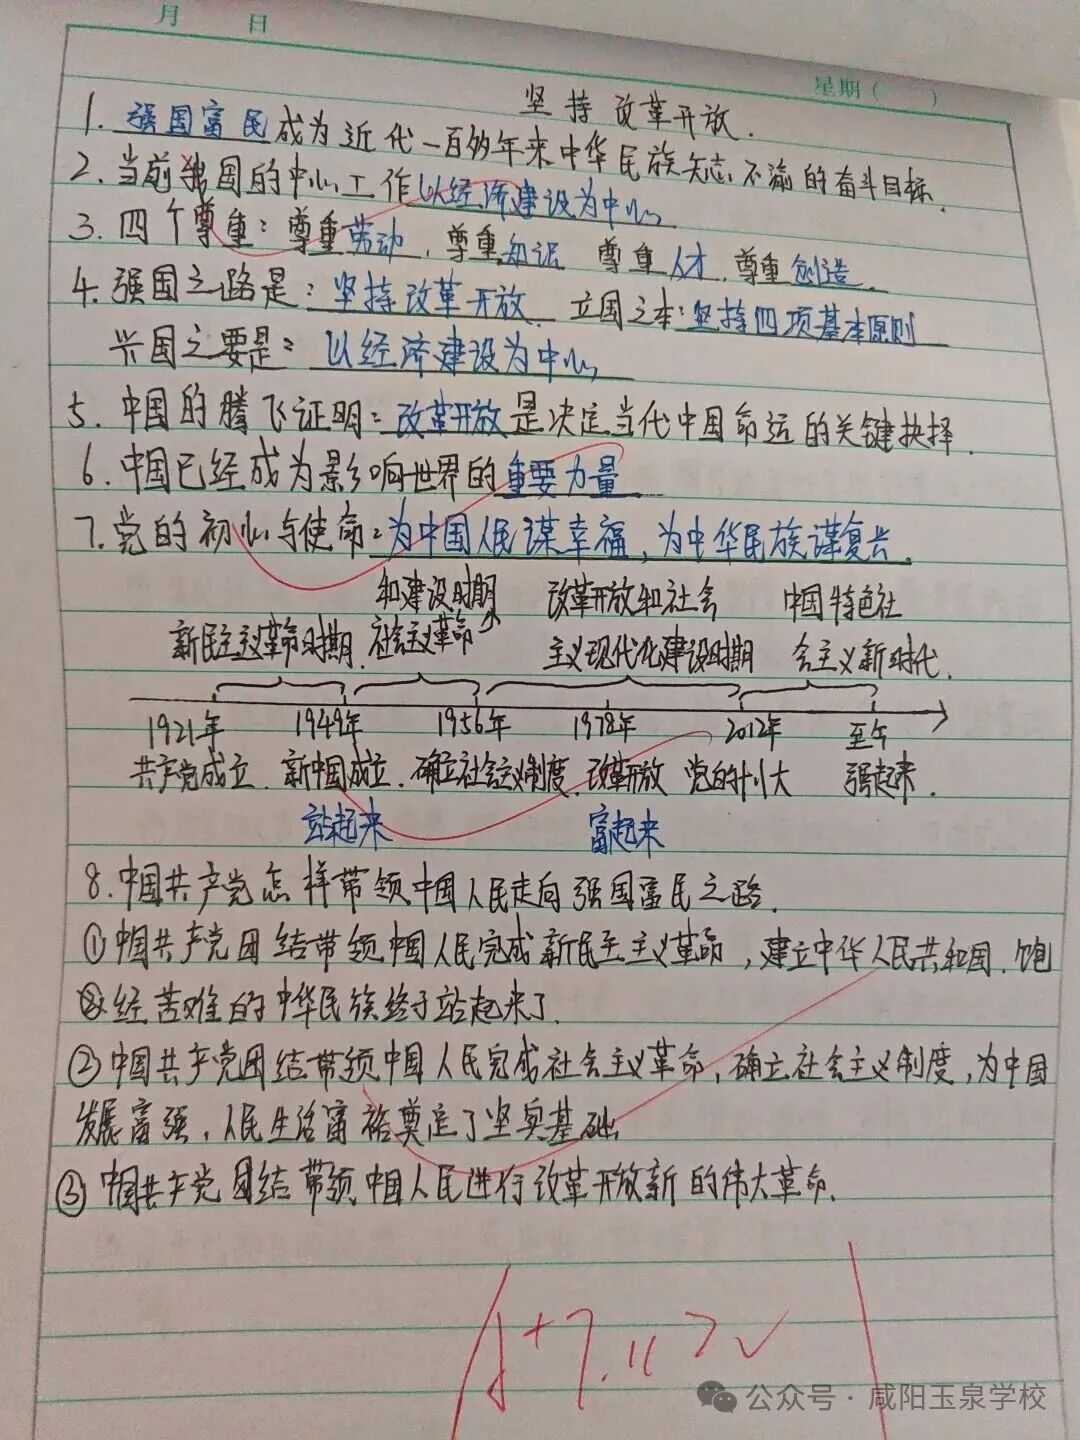 月 日
星期( )
坚持改革开放.
1. 强国富民成为近代一百多年来中华民族矢志不渝的奋斗目标.
2. 当前我国的中心工作以经济建设为中心
3. 四个尊重: 尊重劳动, 尊重知识 尊重人才, 尊重创造.
4. 强国之路是: 坚持改革开放 立国之本: 坚持四项基本原则
兴国之要是: 以经济建设为中心
5. 中国的腾飞证明: 改革开放是决定当代中国命运的关键抉择.
6. 中国已经成为影响世界的重要力量
7. 党的初心与使命: 为中国人民谋幸福, 为中华民族谋复兴.
和建设时期 改革开放和社会 中国特色社
新民主主义革命时期. 社会主义革命 主义现代化建设时期 会主义新时代.
1921年 1949年 1956年 1978年 2012年 至今
共产党成立. 新中国成立. 确立社会主义制度. 改革开放 党的十八大 强起来.
站起来 富起来
8. 中国共产党怎样带领中国人民走向强国富民之路.
①中国共产党团结带领中国人民完成新民主主义革命, 建立中华人民共和国. 饱
经苦难的中华民族终于站起来了.
②中国共产党团结带领中国人民完成社会主义革命, 确立社会主义制度, 为中国
发展富强, 人民生活富裕奠定了坚实基础
③中国共产党团结带领中国人民进行改革开放新的伟大革命.
公众号·咸阳玉泉学校